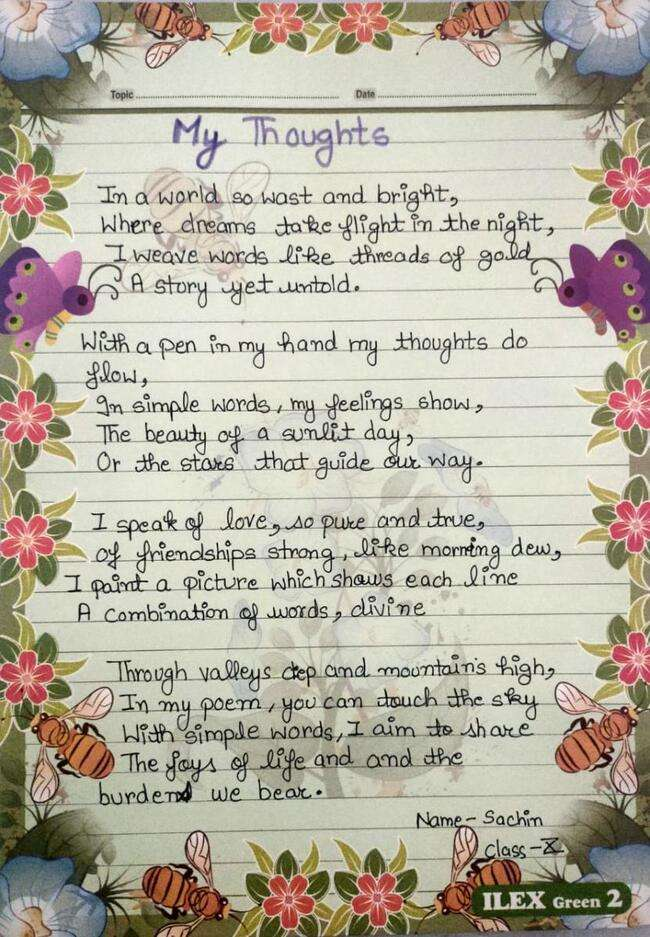 Topic
Date
My Thoughts
In a world so wast and bright,
Where dreams take flight in the night,
I weave words like threads of gold
A story yet untold.
With a pen in my hand my thoughts do
flow,
In simple words, my feelings show,
The beauty of a sunlit day,
Or the stars that guide our way.
I speak of love, so pure and true,
of friendships strong, like morning dew,
I paint a picture which shows each line
A combination of words, divine
Through valleys deep and mountain's high,
In my poem, you can touch the sky
With simple words, I aim to share
The joys of life and and the
burden we bear.
Name- Sachin
Class-X
ILEX Green 2